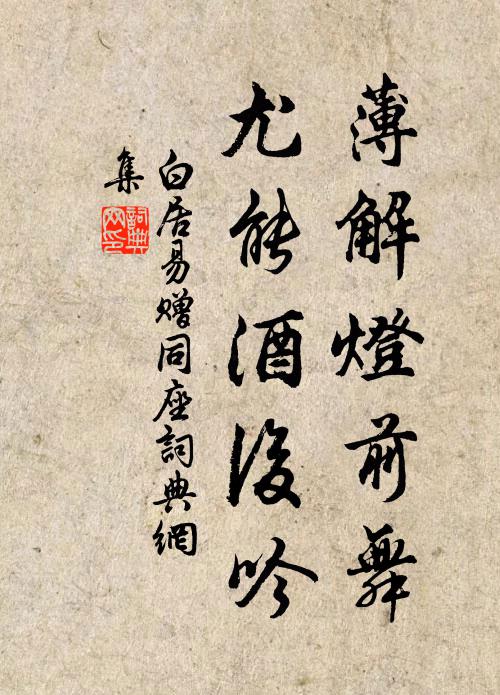 薄解燈前舞
尤能酒後吟
白居易贈同座詞典網
集
詞典網印